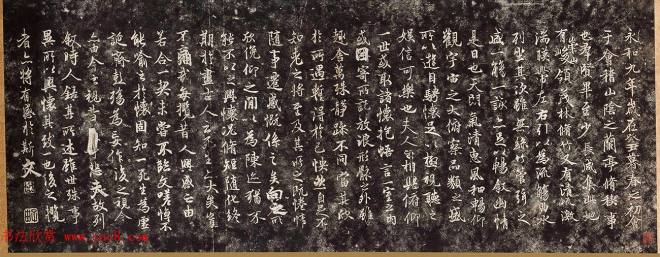 永和九年歲在癸丑暮春之初會
于會稽山陰之蘭亭脩稧事
也羣賢畢至少長咸集此地
有峻領茂林脩竹又有清流激
湍暎帶左右引以為流觴曲水
列坐其次雖無絲竹管弦之
盛一觴一詠亦足以暢敘幽情
是日也天朗氣清惠風和暢仰
觀宇宙之大俯察品類之盛
所以遊目騁懷足以極視聽之
娛信可樂也夫人之相與俯仰
一世或取諸懷抱悟言一室之內
或因寄所託放浪形骸之外雖
趣舍萬殊靜躁不同當其欣
於所遇蹔得於己怏然自足不
知老之將至及其所之既惓情
隨事遷感慨係之矣向之所
欣俛仰之間以為陳迹猶不
能不以之興懷況脩短隨化終
期於盡古人云死生亦大矣豈
不痛哉每攬昔人興感之由
若合一契未嘗不臨文嗟悼不
能喻之於懷固知一死生為虛
誕齊彭殤為妄作後之視今
亦由今之視昔悲夫故列
敘時人錄其所述雖世殊事
異所以興懷其致一也後之攬
者亦將有感於斯文
书法欣赏